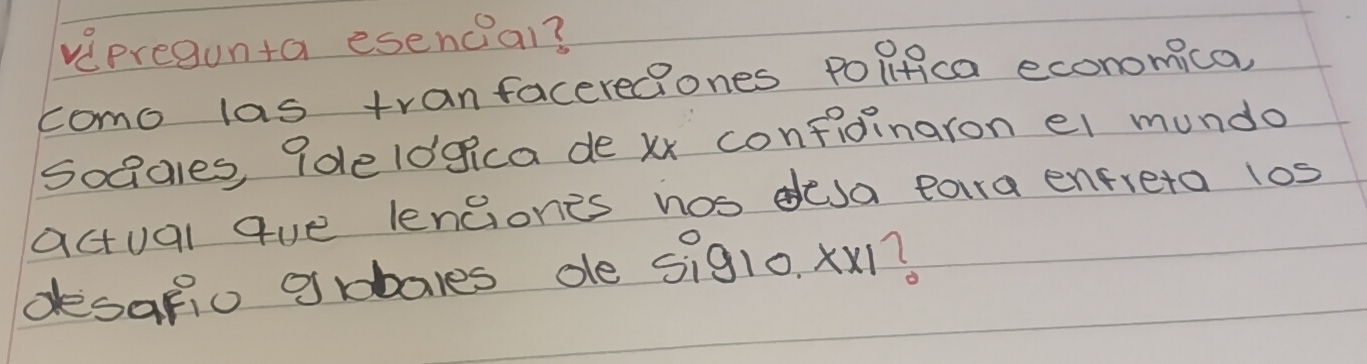 vipregunta esencial?
como las tranfacereciones Politica economica,
sociales, idelógica de xx confidinaron el mundo
actual que lenciones nos desa para enfreta los
desafio grobales de siglo. xxI?